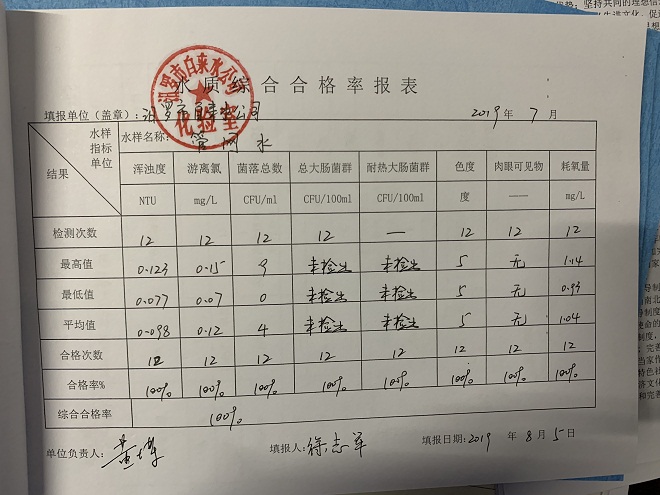 水质综合合格率报表
汨罗市自来水公司
化验室
填报单位（盖章）：汨罗市自来水公司 2019 年 7 月
水样 指标 单位 结果 水样名称： 管网水
浑浊度 游离氯 菌落总数 总大肠菌群 耐热大肠菌群 色度 肉眼可见物 耗氧量
NTU mg/L CFU/ml CFU/100ml CFU/100ml 度 —— mg/L
检测次数 12 12 12 12 — 12 12 12
最高值 0.123 0.15 9 未检出 未检出 5 无 1.14
最低值 0.077 0.07 0 未检出 未检出 5 无 0.93
平均值 0.098 0.12 4 未检出 未检出 5 无 1.04
合格次数 12 12 12 12 12 12 12 12
合格率% 100% 100% 100% 100% 100% 100% 100% 100%
综合合格率 100%
单位负责人： 填报人：徐志军 填报日期：2019 年 8 月 5 日